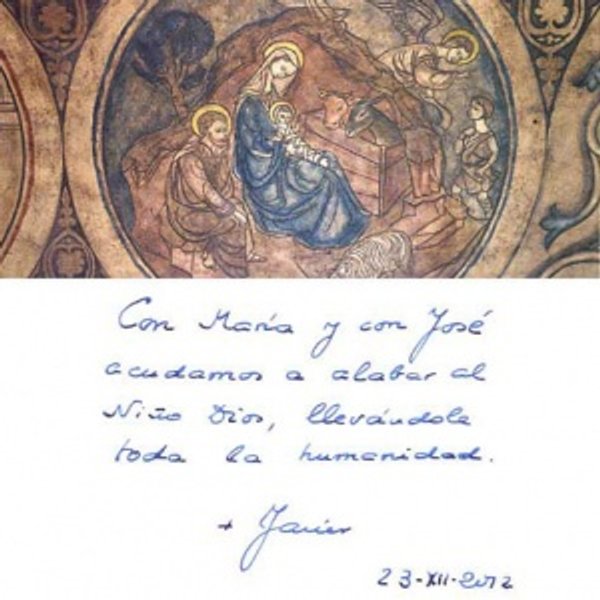 Con María y con José
acudamos a alabar al
Niño Dios, llevándole
toda la humanidad.
+ Javier
23-XII-2012